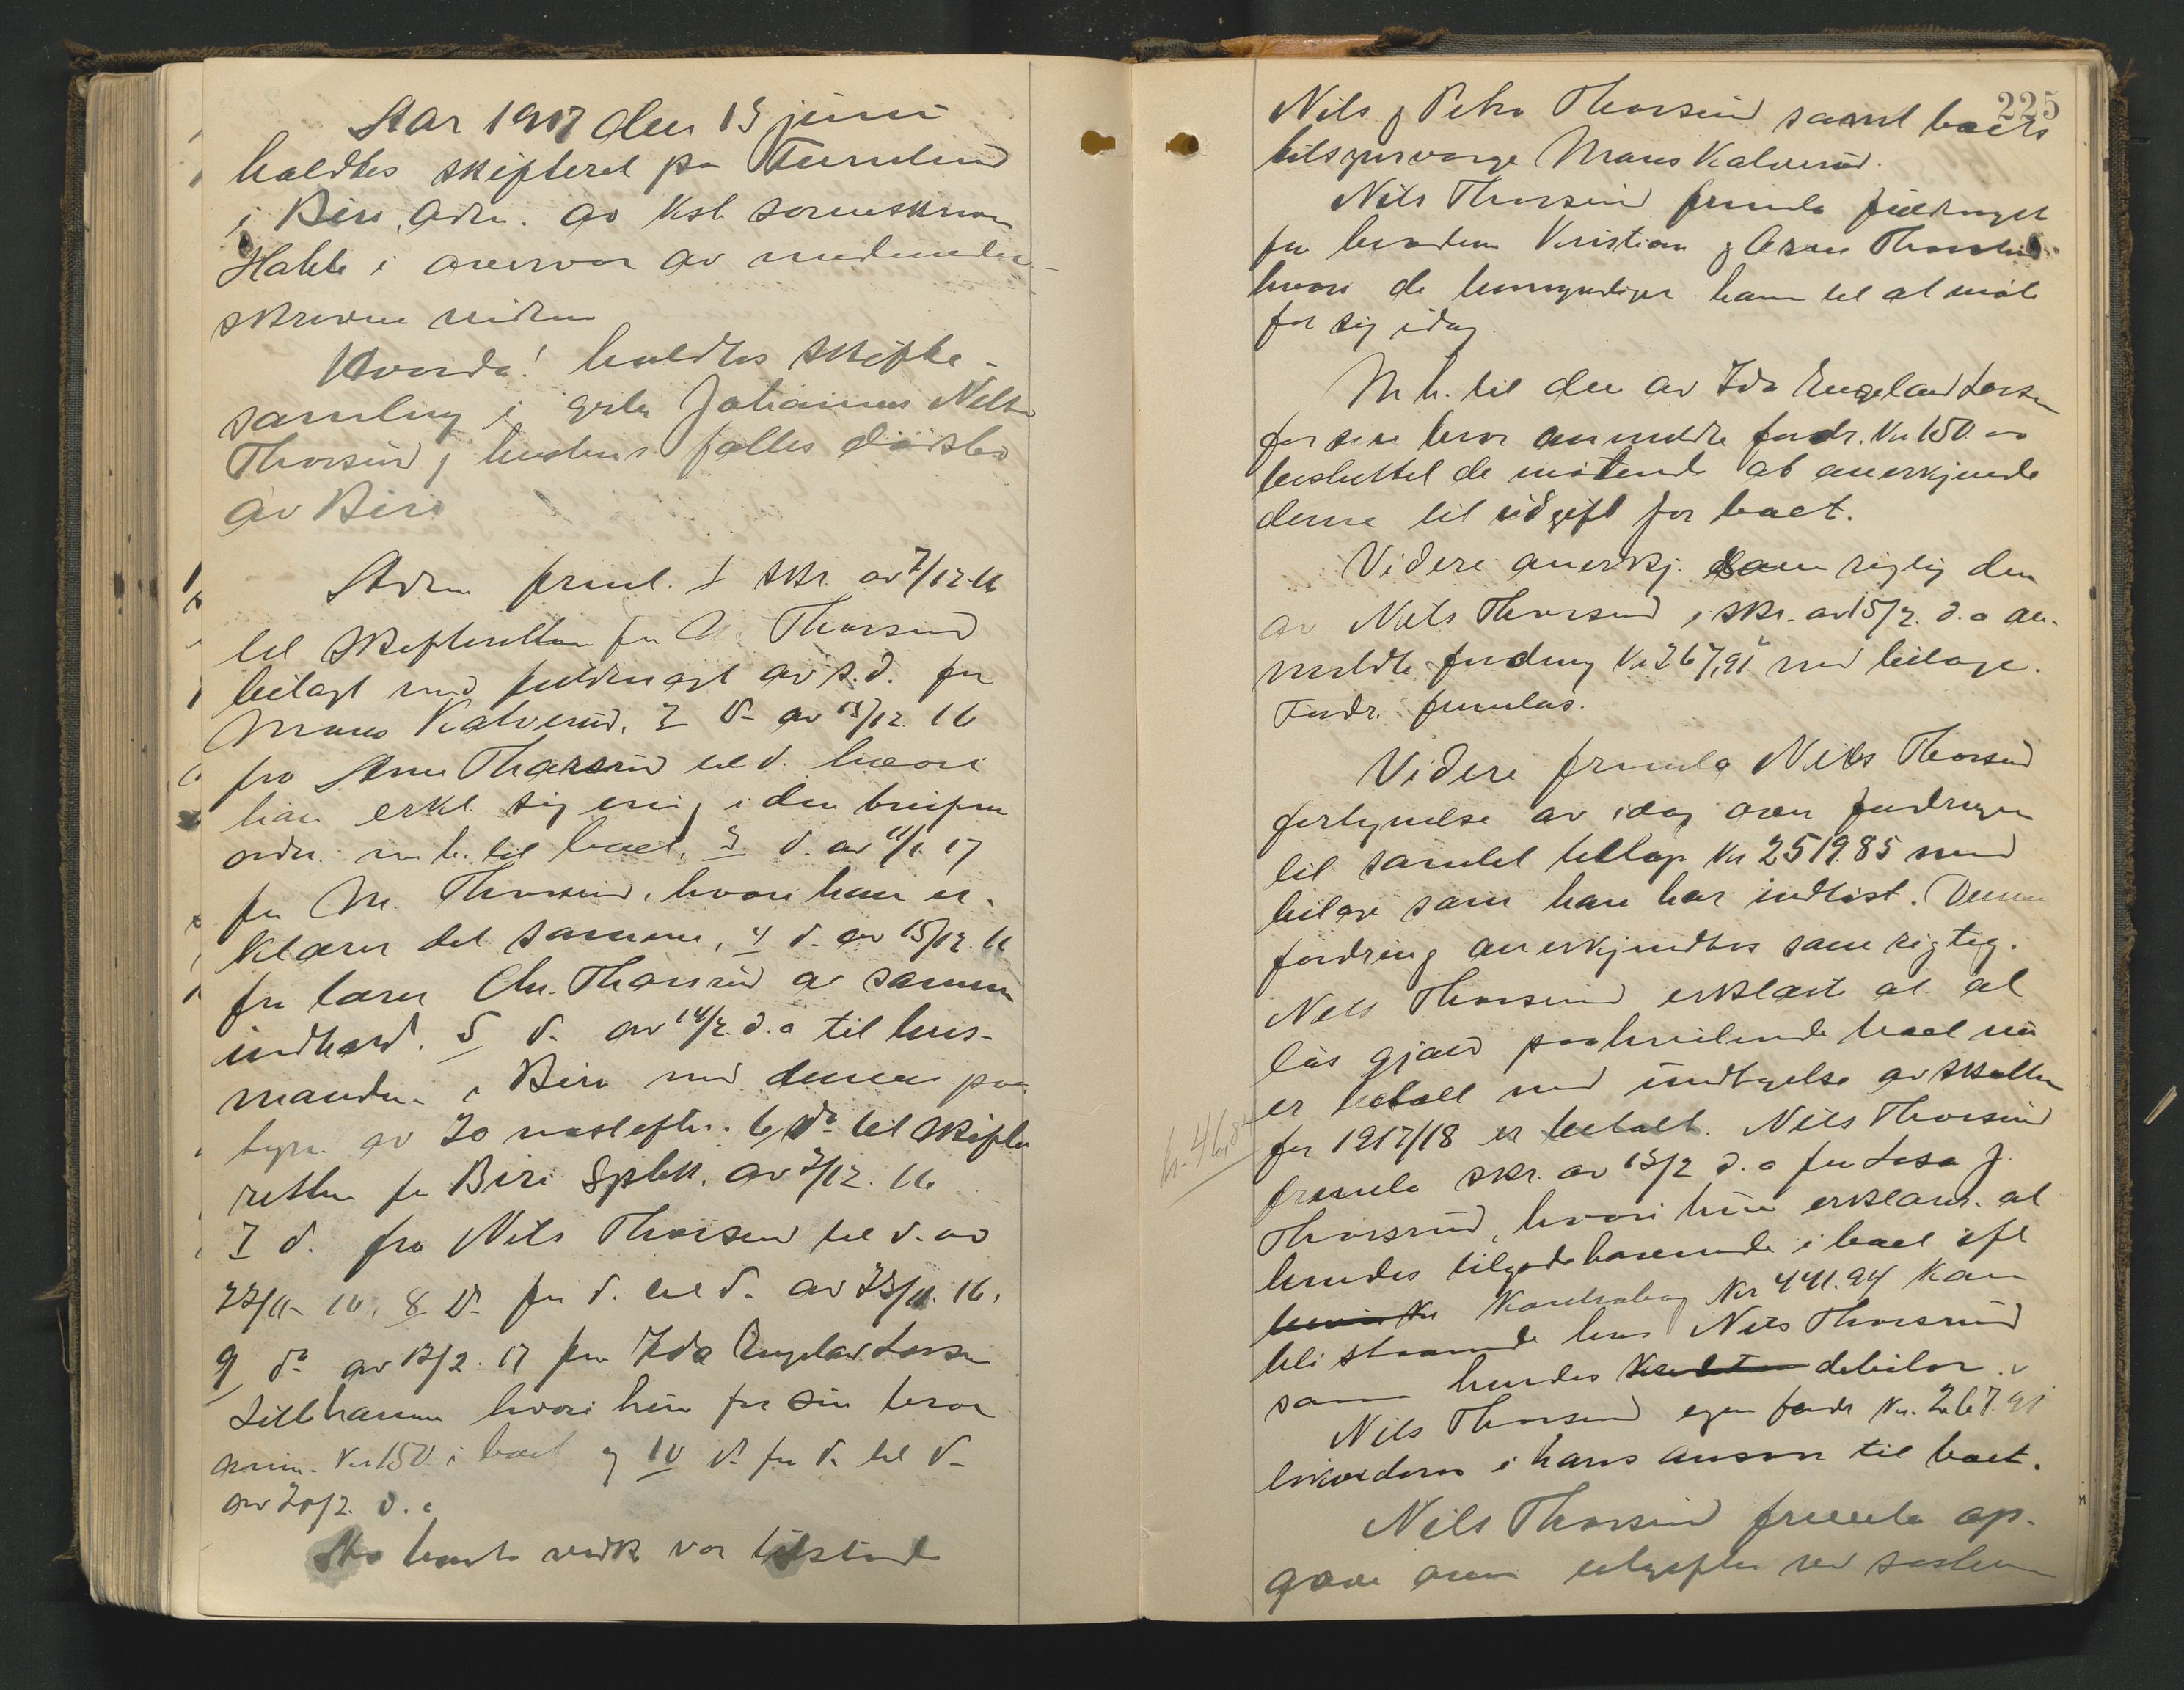 Aar 1917 den 15 juni
holdtes skifteret pa
i Biri, adm. av kst. sorenskriver
Hakke i overvær av medunder-
skrevne vidner
Hvorda! holdtes skifte-
samling i grbr Johannes Nilsen
Thorsrud og hustrus fælles dødsbo
av Biri
Adm freml. 1 skr. av 7/12.16
til skifteretten fra N. Thorsrud
bilagt med fuldmagt av s.d. fra
Maus Kalverud, 2 do av 13/12 16
fra Arne Thorsrud til d. hvori
han erkl. sig enig i den
ordn. m.h. til boet, 3 d. av 11/1 17
fra M. Thorsrud, hvori han er-
klærer det samme, 4 d. av 15/12.16
fra lærer Chr. Thorsrud av samme
indhold. 5 d. av 14/2. d.a til lens-
manden i Biri med dennes paa-
tegn. av 20 næstefter. 6 do til skifte
retten fra Biri Spbk. av 7/12. 16
7 d. fra Nils Thorsrud til d. av
22/11- 16, 8 do fra d. til d. av 23/11. 16,
9 do av 12/2. 17 fra Ida Engeland Larsen
Lillehammer hvori hun for sin bror
anm. Kr 150 i boet og 10 do fra d. til d.
av 20/2. d.a
Av boets vedk var tilstede
225
Nils og Petra Thorsrud samt boets
tilsynsverge Maus Kalverud.
Nils Thorsrud fremla fuldmagt
fra brødrene Kristian og Arne Thorsrud
hvori de bemyndiger ham til at møte
for sig idag.
M.h. til den av Ida Engeland Larsen
for sin bror anmeldte fordr. Kr 150.00
besluttet de møtende at anerkjende
denne til utgift for boet.
Videre anerkj. som rigtig den
av Nils Thorsrud i skr. av 15/2. d.a an-
meldte fordring Kr 267,91 med bilage.
Fordr. fremlas.
Videre fremla Nils Thorsrud
fortegnelse av idag over fordringer
til samlet beløp Kr 2519.85 med
bilage som han har indløst. Denne
fordring anerkjendtes som rigtig.
Nils Thorsrud erklærte at al
løs gjæld paahvilende boet nu
er betalt med undtagelse av skatten
for 1917/18 er betalt. Nils Thorsrud
kr. 46,8
fremla skr. av 15/2 d.a fra Lisa J.
Thorsrud, hvori hun erklærer at
hendes tilgodehavende i boet ifl
Kontrabog Kr 441.94 kan
bli staaende hos Nils Thorsrud
som hendes debitor.
Nils Thorsrud egen fordr Kr. 267.91
likvideres i hans ansvar til boet.
Nils Thorsrud fremla op-
gave over utgifter ved